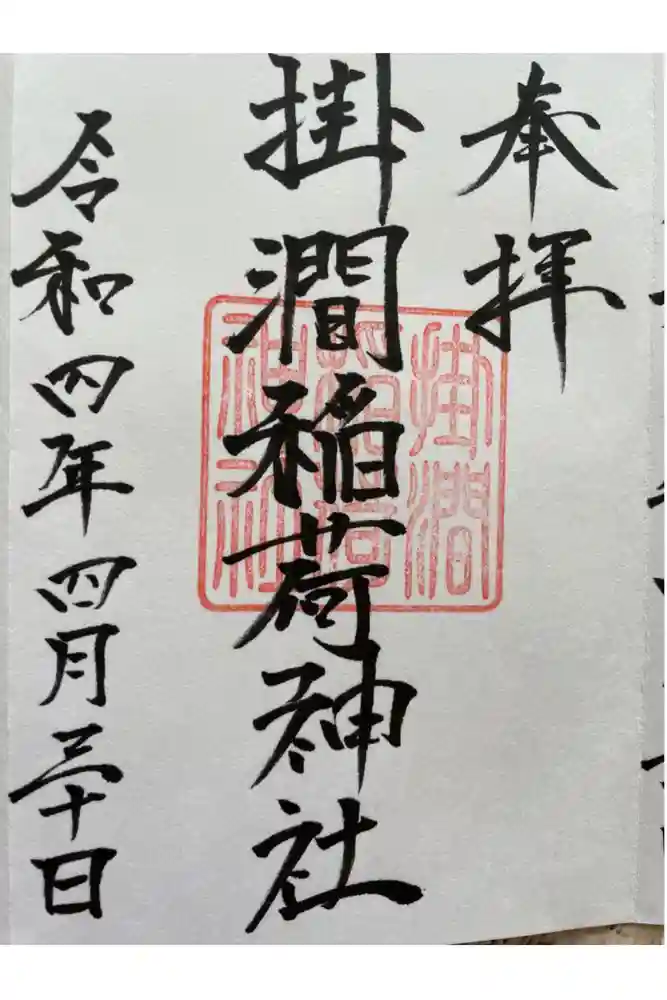 奉拝
掛澗稲荷神社
掛澗
稲荷
神社
令和四年四月三十日